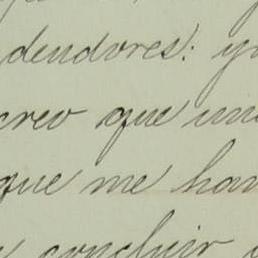 dendores: y
creo que un
que me han
concluir